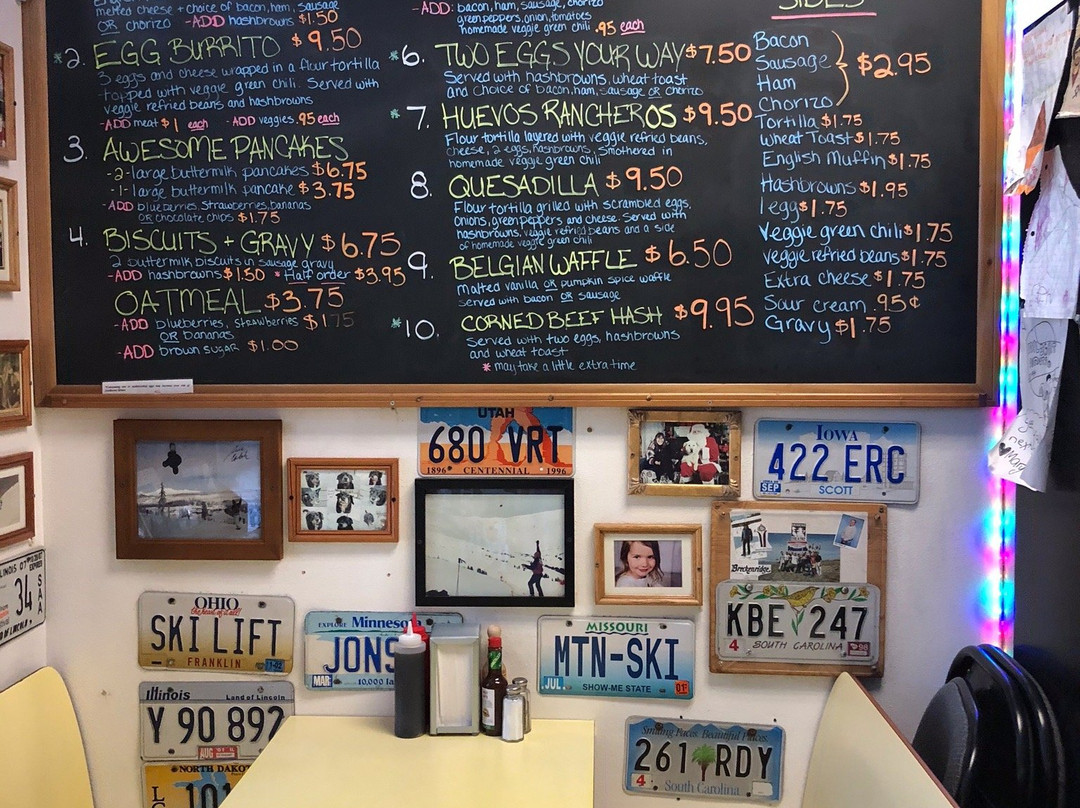 melted cheese + choice of bacon, ham, sausage
OR chorizo -ADD hashbrowns $1.50
*2. EGG BURRITO $9.50
3 eggs and cheese wrapped in a flour tortilla
topped with veggie green chili. Served with
veggie refried beans and hashbrowns
-ADD meat $1 each -ADD veggies .95 each
3. AWESOME PANCAKES
-2- large buttermilk pancakes $6.75
-1- large buttermilk pancake $3.75
-ADD blueberries, strawberries, bananas
OR chocolate chips $1.75
4. BISCUITS + GRAVY $6.75
2 buttermilk biscuits in sausage gravy
-ADD hashbrowns $1.50 * Half order $3.95
OATMEAL $3.75
-ADD blueberries, strawberries $1.75
OR bananas
-ADD brown sugar $1.00
-ADD: bacon, ham, sausage, chorizo
green peppers, onion, tomatoes
homemade veggie green chili .95 each
*6. TWO EGGS YOUR WAY $7.50
Served with hashbrowns, wheat toast
and choice of bacon, ham, sausage OR chorizo
*7. HUEVOS RANCHEROS $9.50
Flour tortilla layered with veggie refried beans,
cheese, 2 eggs, hashbrowns, smothered in
homemade veggie green chili
8. QUESADILLA $9.50
Flour tortilla grilled with scrambled eggs,
onions, green peppers and cheese. Served with
hashbrowns, veggie refried beans and a side
of homemade veggie green chili
9. BELGIAN WAFFLE $6.50
malted vanilla OR pumpkin spice waffle
served with bacon OR sausage
*10. CORNED BEEF HASH $9.95
Served with two eggs, hashbrowns
and wheat toast
* may take a little extra time
SIDES
Bacon
Sausage
Ham
Chorizo
$2.95
Tortilla $1.75
Wheat Toast $1.75
English Muffin $1.75
Hashbrowns $1.95
1 egg $1.75
Veggie green chili $1.75
Veggie refried beans $1.75
Extra cheese $1.75
Sour cream .95¢
Gravy $1.75
UTAH
680 VRT
1896 CENTENNIAL 1996
IOWA
422 ERC
SEP SCOTT
Breckenridge
KBE 247
4 SOUTH CAROLINA 98
34
OHIO
the heart of it all!
SKI LIFT
FRANKLIN 7-02
EXPLORE Minnesota
JONS
MAR 10,000 la
MISSOURI
MTN-SKI
JUL SHOW-ME STATE 01
Illinois Land of Lincoln
Y 90 892
AUG
NORTH DAKO
101
Smiling Faces. Beautiful Places.
261 RDY
4 South Carolina
next
Mary